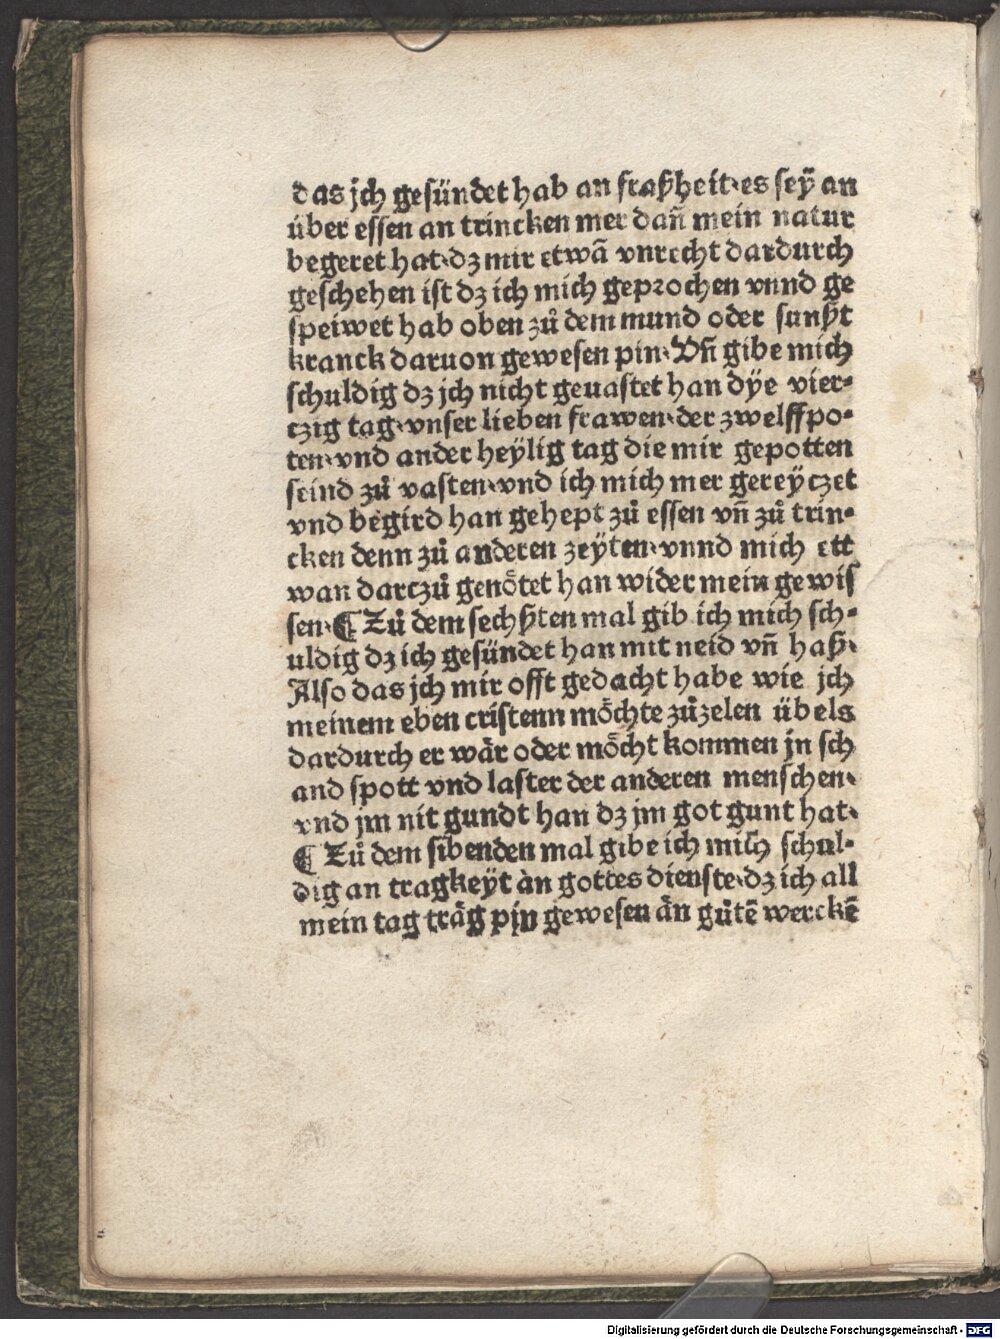 das jch gesündet hab an fraßheit·es seÿ an
über essen an trincken mer dañ mein natur
begeret hat·dz mir etwã vnrecht dardurch
geschehen ist dz ich mich geprochen vnnd ge
speiwet hab oben zů dem mund oder sunßt
kranck daruon gewesen pin·Vñ gibe mich
schuldig dz jch nicht geuastet han dÿe vier⸗
tzig tag·vnser lieben frawen·der zwelffpo⸗
ten·vnd ander heÿlig tag die mir gepotten
seind zů vasten·vnd ich mich mer gereÿczet
vnd begird han gehept zů essen vñ zů trin⸗
cken denn zů anderen zeÿten·vnnd mich ett
wan darczů genötet han wider mein gewis
sen·¶ Zů dem sechßten mal gib ich mich sch⸗
uldig dz ich gesündet han mit neid vñ haß·
Also das jch mir offt gedacht habe wie jch
meinem eben cristenn möchte zůzelen übels
dardurch er wär oder möcht kommen jn sch
and spott vnd laster der anderen menschen·
vnd jm nit gundt han dz jm got gunt hat·
¶ Zů dem sibenden mal gibe ich mich schul⸗
dig an tragkeÿt àn gottes dienste·dz ich all
mein tag träg pjn gewesen än gůtē werckē
Digitalisierung gefördert durch die Deutsche Forschungsgemeinschaft - DFG